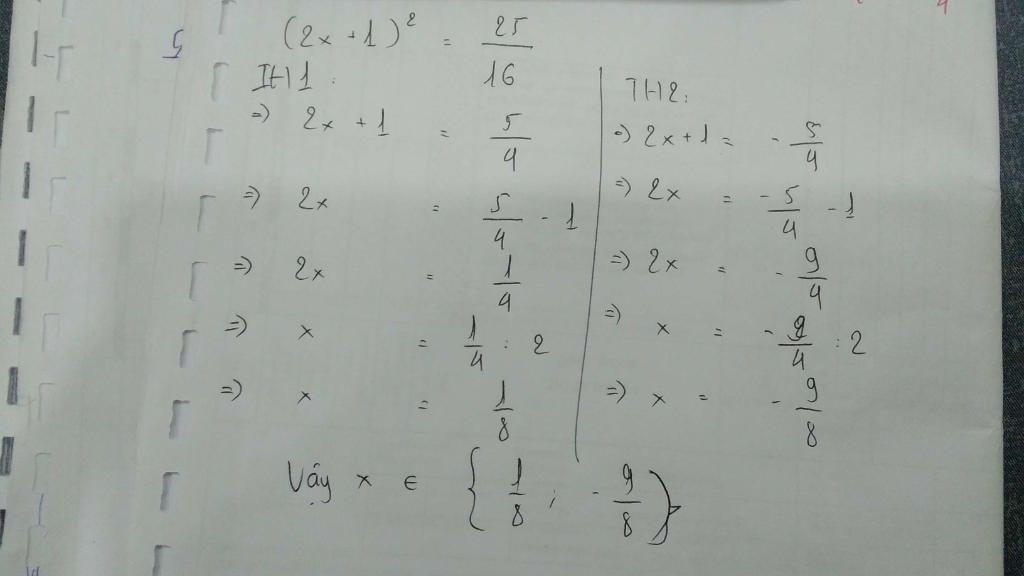 5
(2x + 1)² = 25/16
TH1:
=> 2x + 1 = 5/4
=> 2x = 5/4 - 1
=> 2x = 1/4
=> x = 1/4 : 2
=> x = 1/8
TH2:
=> 2x + 1 = - 5/4
=> 2x = - 5/4 - 1
=> 2x = - 9/4
=> x = - 9/4 : 2
=> x = - 9/8
Vậy x ∈ { 1/8 ; - 9/8 }